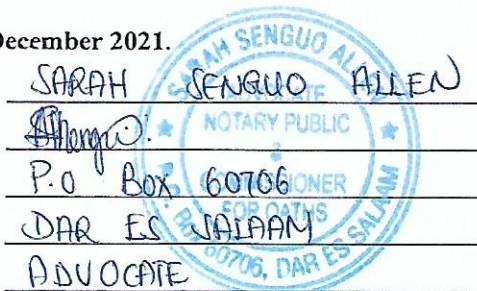 December 2021.
SARAH SENGUO ALLEN
P.O BOX 60706
DAR ES SALAAM
ADVOCATE
SARAH SENGUO ALLEN
ADVOCATE
NOTARY PUBLIC
&
COMMISSIONER
FOR OATHS
P.O. BOX 60706, DAR ES SALAAM